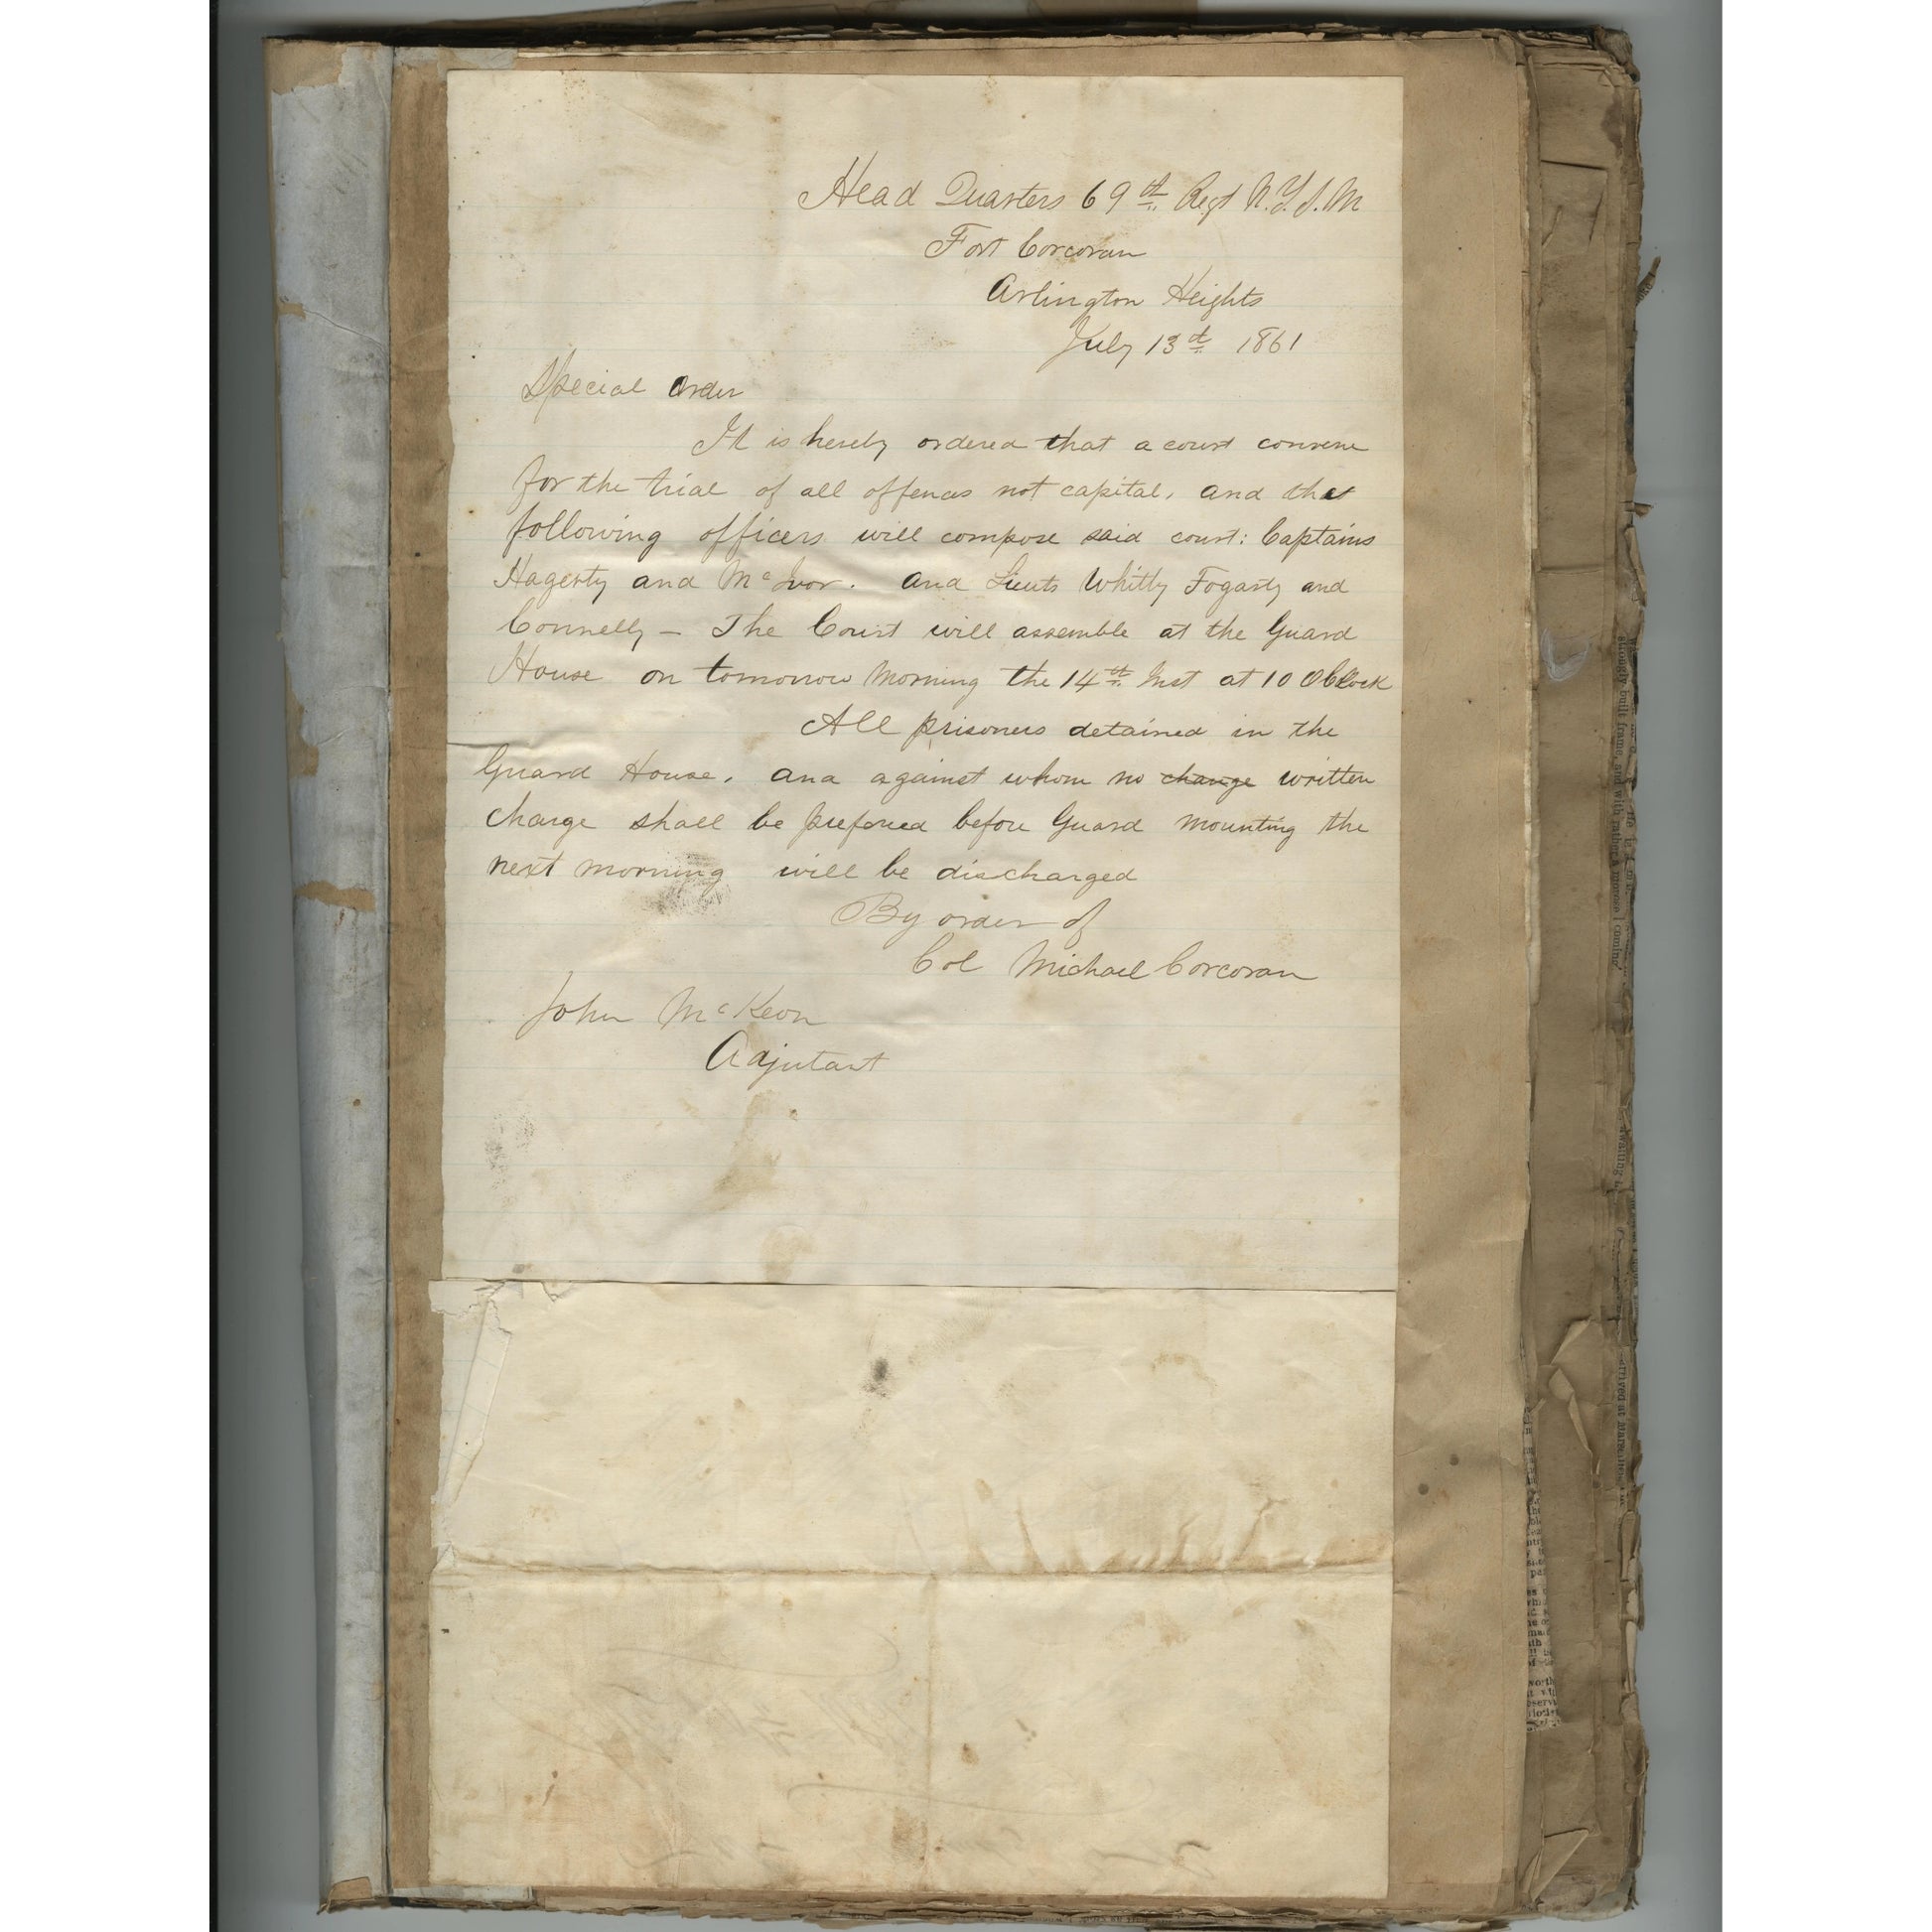 Head Quarters 69th Regt N.Y.S.M
Fort Corcoran
Arlington Heights
July 13th 1861
Special Order
It is hereby ordered that a court convene
for the trial of all offences not capital, and that
following officers will compose said court: Captains
Hagerty and McIvor. and Lieuts Whitty Fogarty and
Connelly – The Court will assemble at the Guard
House on tomorrow Morning the 14th Inst at 10 OClock
All prisoners detained in the
Guard House, and against whom no change written
charge shall be prefered before Guard Mounting the
next morning will be discharged
By order of
Col Michael Corcoran
John McKeon
Adjutant